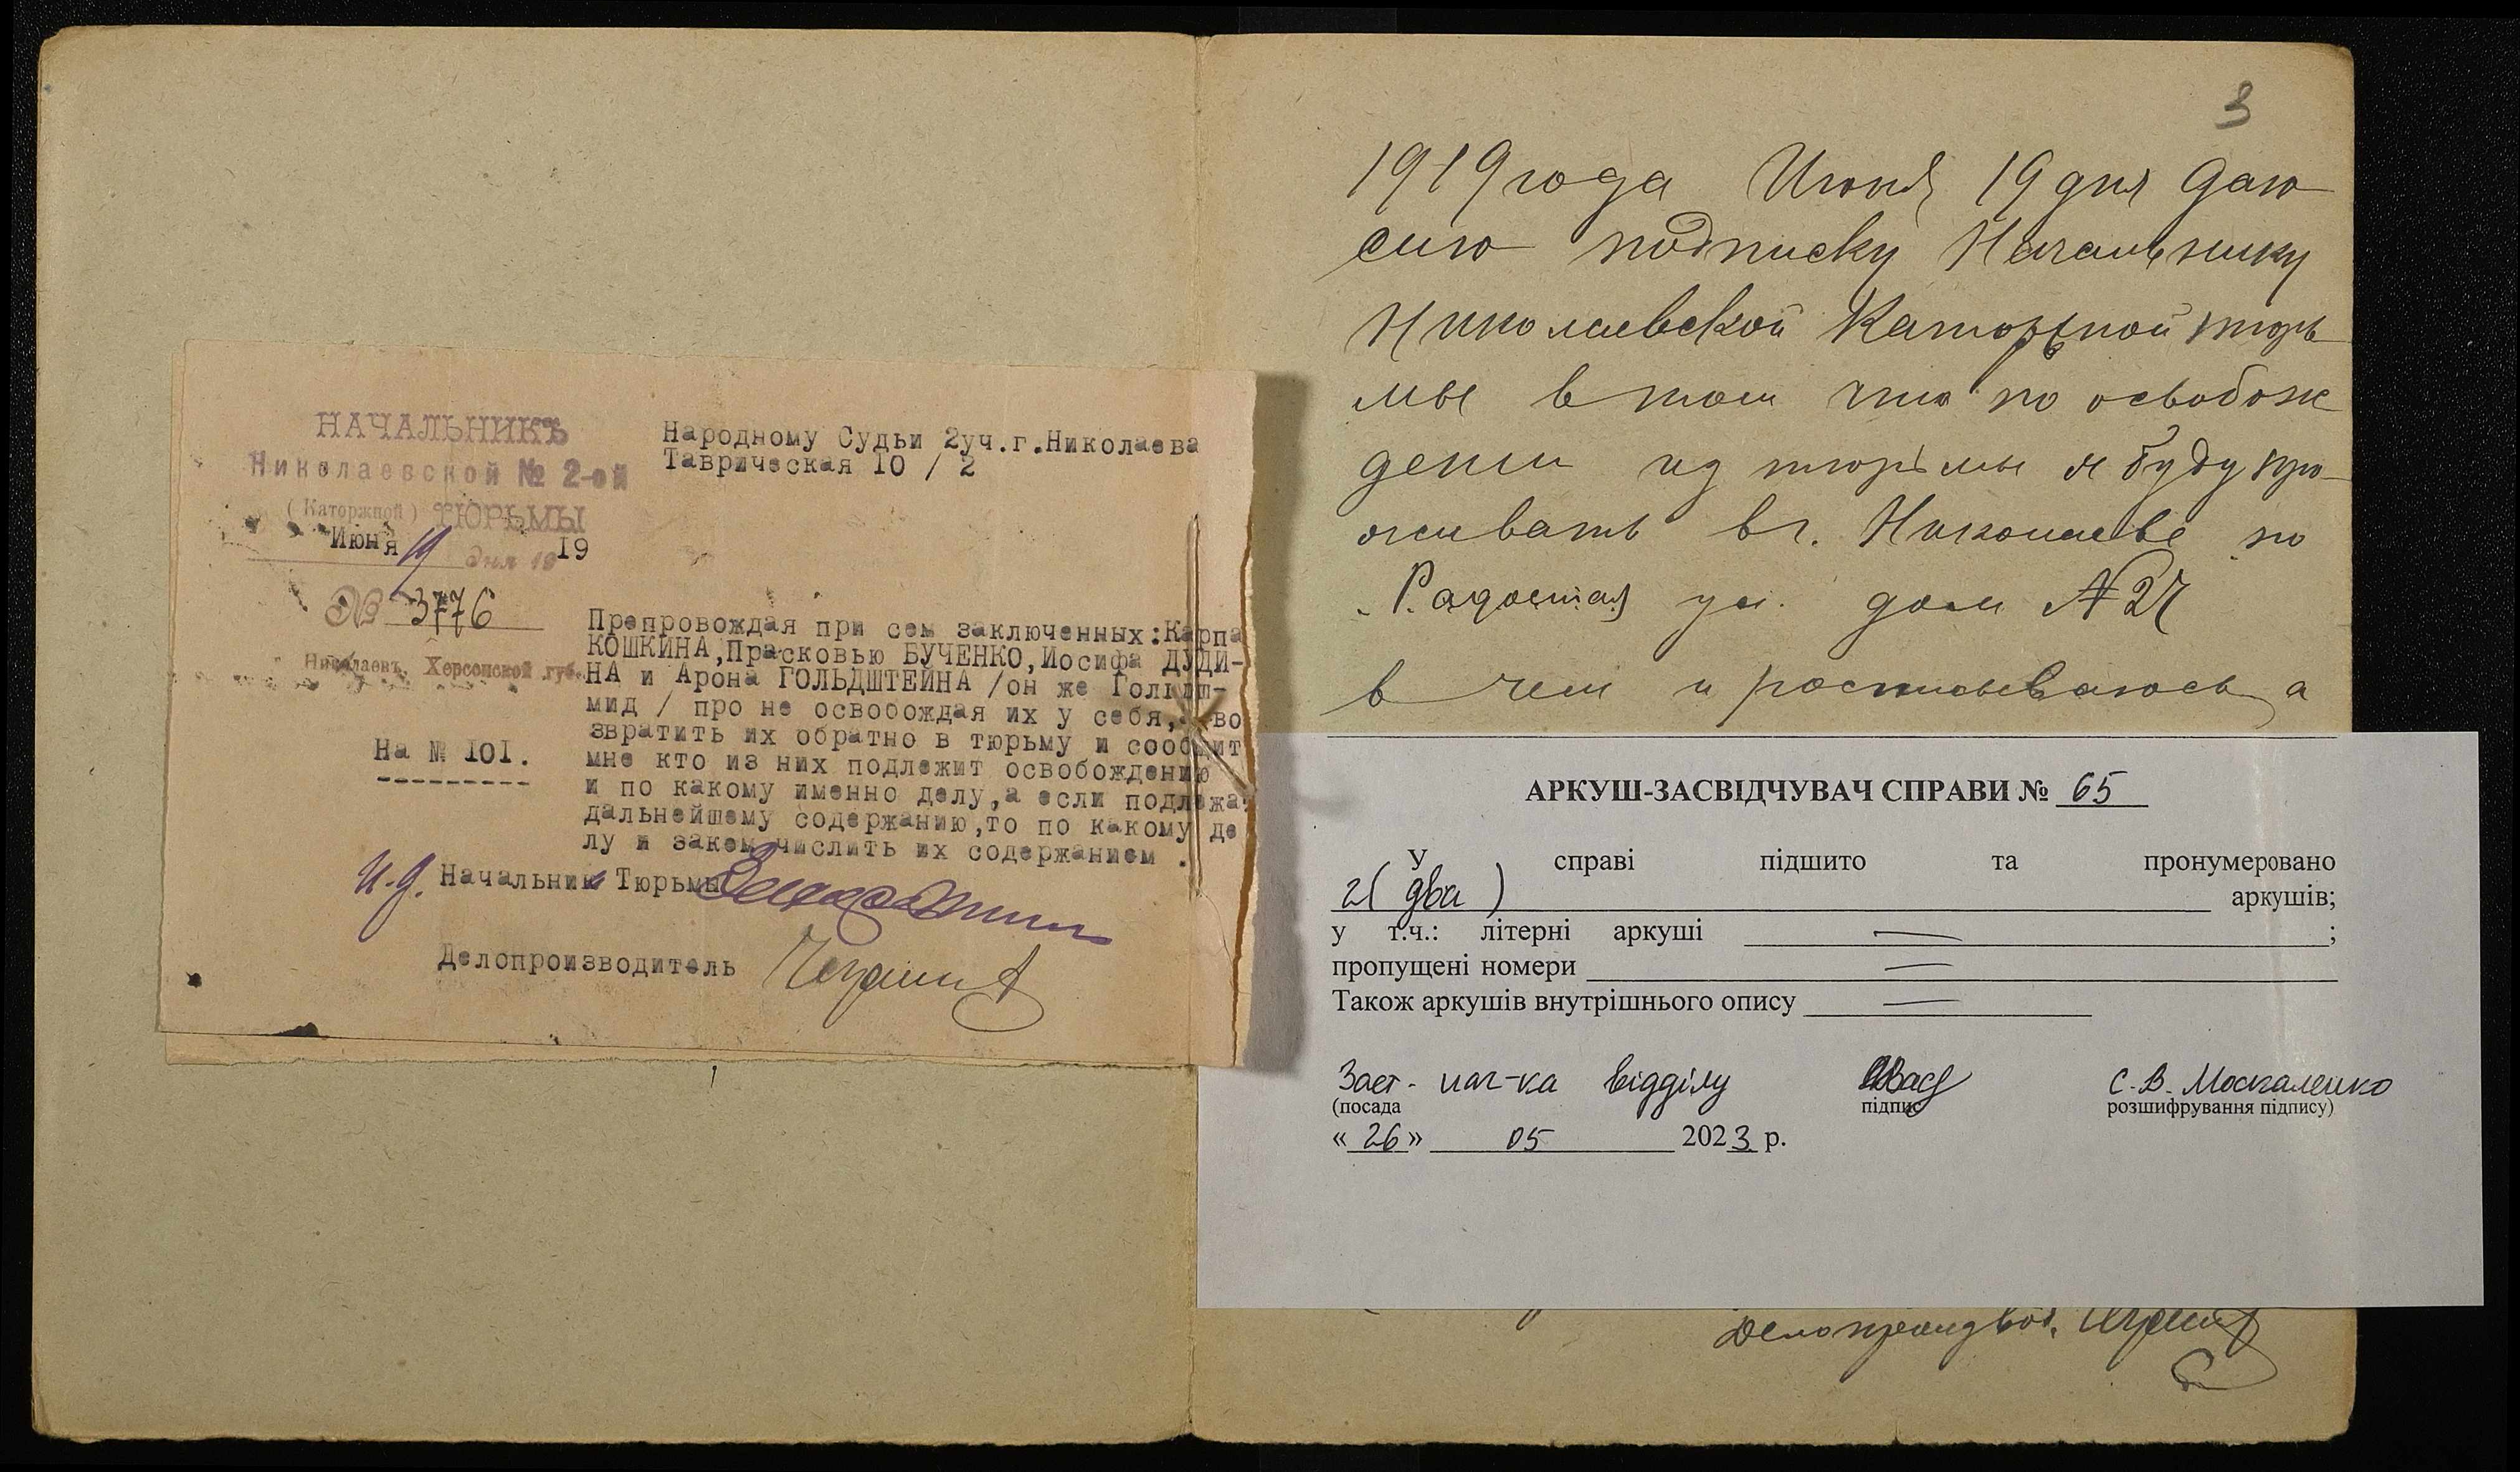 НАЧАЛЬНИКЪ
Николаевской № 2-ой
(Каторжной) ТЮРЬМЫ
Июня 19 дня 1919
№ 3776
Николаевъ, Херсонской губ.
На № 101.
Народному Судьи 2уч.г.Николаева
Таврическая 10 / 2
Препровождая при сем заключенных:Карпа
КОШКИНА,Прасковью БУЧЕНКО,Иосифа ДУДИ-
НА и Арона ГОЛЬДШТЕЙНА /он же Гольдш-
мид / про не освобождая их у себя, во
звратить их обратно в тюрьму и сообщит
мне кто из них подлежит освобождению
и по какому именно делу,а если подлежа
дальнейшему содержанию,то по какому де
лу и закем числить их содержанием .
И.д. Начальник Тюрьмы
Делопроизводитель
3
1919 года Июня 19 дня даю
сию подписку Начальнику
Николаевской Каторжной тюрь
мы в том что по освобож
дении из тюрьмы я буду про
живать в г. Николаеве по
ул. дом № 27
в чем и росписываюсь а
Делопроизвод.
АРКУШ-ЗАСВІДЧУВАЧ СПРАВИ № 65
У справі підшито та пронумеровано
2 ( два ) аркушів;
у т.ч.: літерні аркуші — ;
пропущені номери —
Також аркушів внутрішнього опису —
Заст. нач-ка відділу С.В. Москаленко
(посада підпис розшифрування підпису)
« 26 » 05 2023 р.